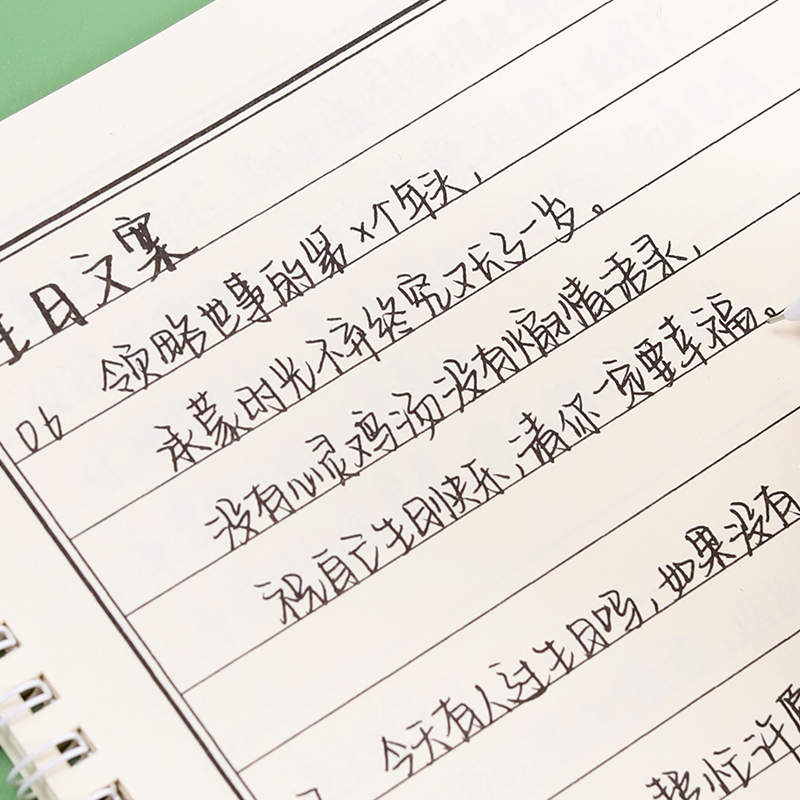 生日文案
06 领略世事的第x个年头,
承蒙时光不弃终究又长了一岁。
没有心灵鸡汤没有煽情语录,
祝自己生日快乐,请你一定要幸福。
今天有人过生日吗,如果没有
帮忙许愿